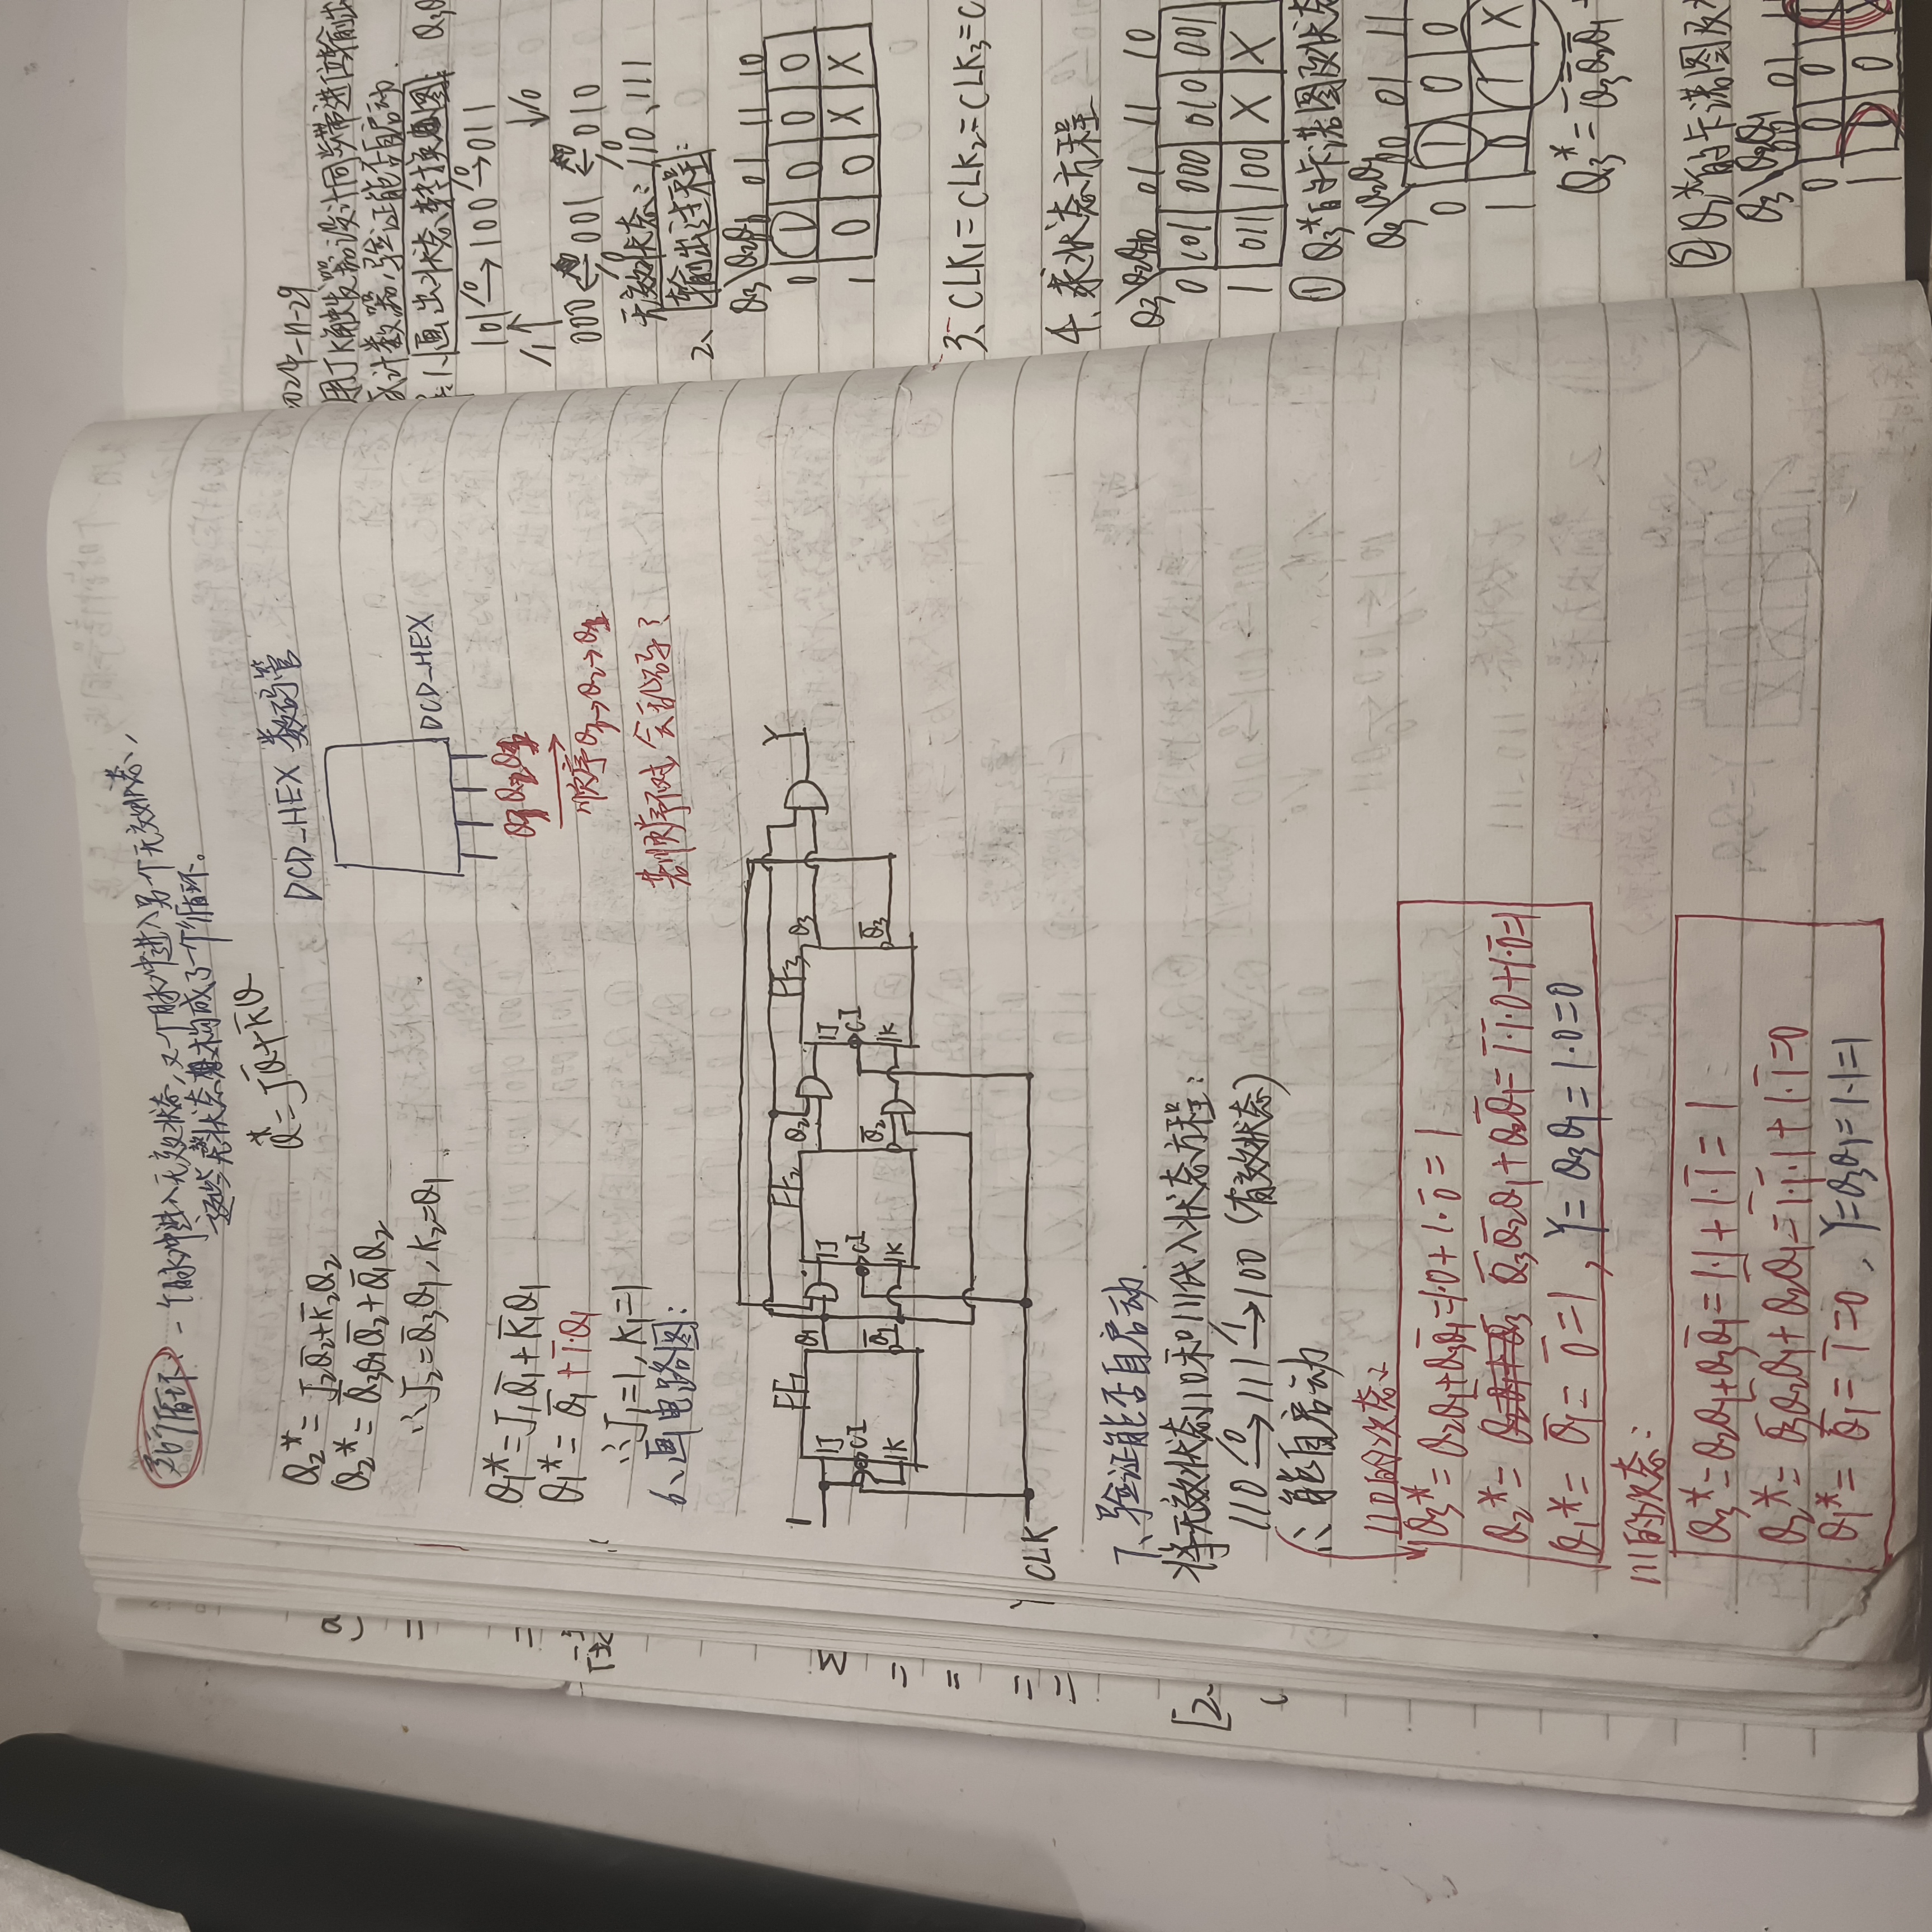 死循环：一个脉冲进入无效状态，又一个脉冲进入另一个无效状态，
这些无效状态构成了一个循环。
Q*=JQ̅+K̅Q
Q₂*=J₂Q̅₂+K̅₂Q₂
Q₂*=Q̅₃Q₁Q̅₂+Q̅₁Q₂
∴J₂=Q̅₃Q₁，K₂=Q₁
Q₁*=J₁Q̅₁+K̅₁Q₁
Q₁*=Q̅₁+1̅·Q₁
∴J₁=1，K₁=1
DCD_HEX 数码管
DCD_HEX
Q₃ Q₂ Q₁
顺序Q₃→Q₂→Q₁
若顺序不对，会乱码？
6、画电路图：
1 FF₁ Q₁ FF₂ Q₂ FF₃ Q₃ Y
1J 1J 1J
C1 C1 C1
1K Q̅₁ 1K Q̅₂ 1K Q̅₃
CLK
7、验证能否自启动.
将无效状态110和111代入状态方程：
110 /0→ 111 /1→ 100（有效状态）
∴能自启动
110的次态：
Q₃*=Q₂Q₁+Q₃Q̅₁=1·0+1·0̅=1
Q₂*= Q̅₃Q̅₂Q₁+Q₂Q̅₁=1̅·1̅·0+1·0̅=1
Q₁*=Q̅₁=0̅=1，Y=Q₃Q₁=1·0=0
111的次态：
Q₃*=Q₂Q₁+Q₃Q̅₁=1·1+1·1̅=1
Q₂*=Q̅₃Q̅₂Q₁+Q₂Q̅₁=1̅·1̅·1+1·1̅=0
Q₁*=Q̅₁=1̅=0，Y=Q₃Q₁=1·1=1
2024-11-29
用JK触发器设计同步带进位输出
计数器，验证能否自启动.
1、画出状态转换图：
101 /0→ 100 /0→ 011
/1↑ ↓/0
000 ← 001 ← 010
/0 /0
无效状态：110、111
2、输出过程：
Q₃\Q₂Q₁ 01 11 10
0 1 0 0 0
1 0 0 X X
3、CLK₁=CLK₂=CLK₃=C
4、求状态方程
Q₃\Q₂Q₁ 01 11 10
0 101 000 010 001
1 011 100 X X
① Q₃*的卡诺图及状态
Q₃\Q₂Q₁ 00 01 11
0 1 0 0
1 0 1 X
Q₃*=Q̅₃Q̅₂Q̅₁
② Q₂*的卡诺图及
Q₃\Q₂Q₁ 00 01
0 0 0
1 1 0